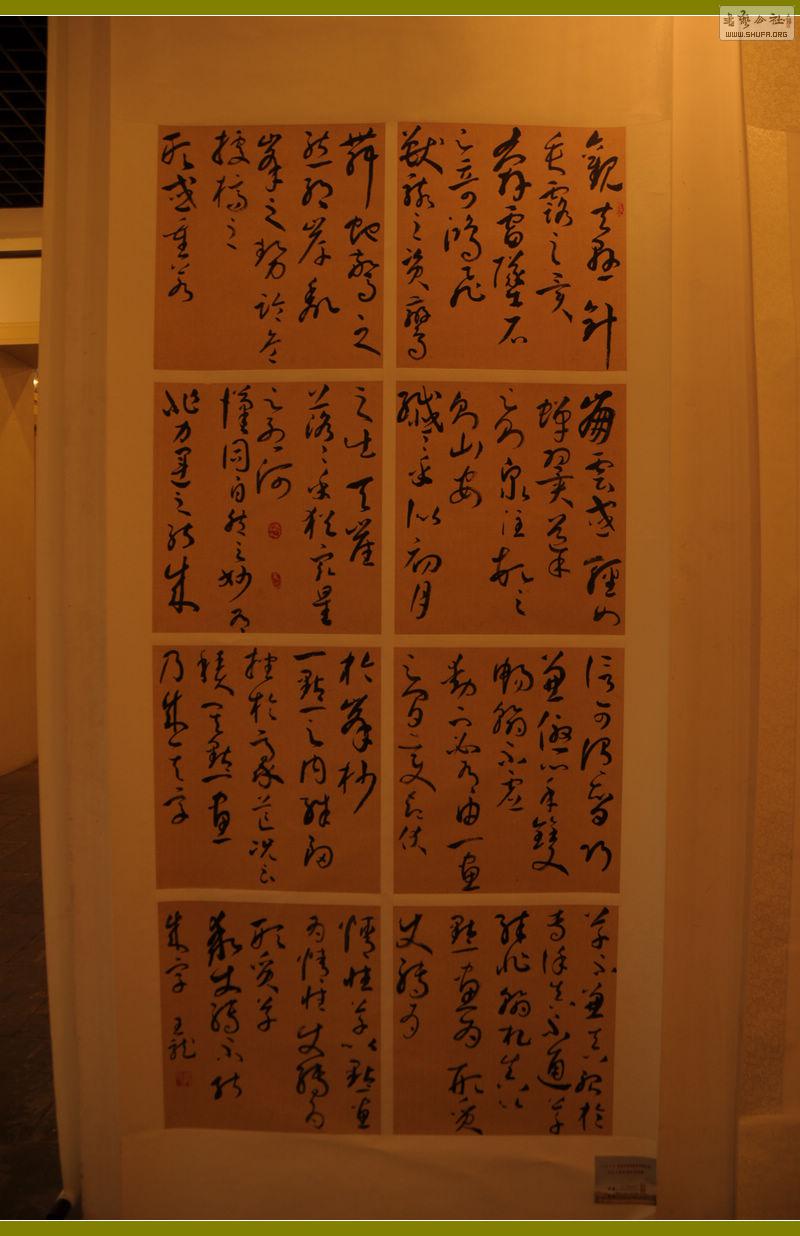 觀夫懸針
垂露之異
奔雷墜石
之奇鴻飛
獸駭之資鸞
舞蛇驚之
態絕岸頹
峯之勢臨危
據槁之
形或重若
崩雲或輕如
蟬翼導
之則泉注頓之
則山安
纖纖乎似初月
之出天崖
落落乎猶眾星
之列河
漢同自然之妙有
非力運之能成
信可謂智巧
兼優心手雙
暢翰不虛
動下必有由一畫
之間變起伏
於峯杪
一點之內殊衄
挫於豪芒況云
積其點畫
乃成其字
草不兼真殆於
專謹真不通草
殊非翰札真以
點畫為形質
使轉為
情性草以點畫
為情性使轉為
形質草
乖使轉不能
成字 王龍
書藝公社
WWW.SHUFA.ORG